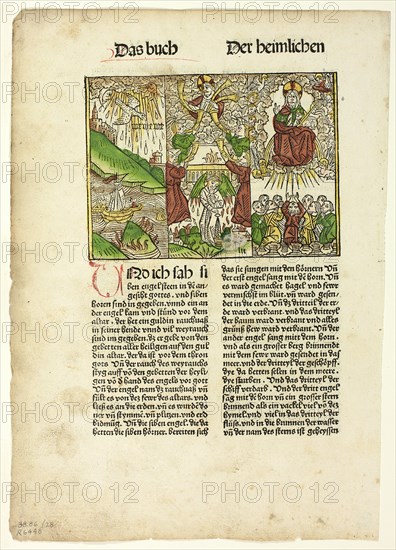 Das buch
Der heimlichen
Und ich sah si
ben engel steen in dē an⸗
gesicht gottes. vnd siben
horen sind in gegeben. vnnd ein an⸗
der engel kam vnd stůnd vor dem
altar. der het ein guldin rauchuaß
in seiner hende vnd vil weyrauch
sind im gegeben. dz er geb von den
gebetten aller heiligen auf den gul
din altar. der da ist vor dem thron
gots Vnd der rauch des weyrauchs
steyg auff vō den gebetten der heyli
gen vō d hand des engels vor got
Vn̄ der engel nam dz rauchuaß vn̄
fület es von dez fewr des altars. vnd
ließ es an die erden. vn̄ es wurdē do
ner vn̄ stymmē. vn̄ plitzen. vnd erd
bidmūg. Vn̄ die siben engel. die da
hetten die siben hörner. bereiten sich
das sie sungen mit den hörnern Vn̄
der erst engel sang mit dem horn. Vn̄
es ward gemachet hagel vnd fewr
vermischt im blůt. vn̄ ward gesen⸗
det in die erde. Vn̄ dz dritteil der er
de ward verbrant. vnd das dritteyl
der baum ward verbrant vnd alles
grünß hew ward verbrant. Vnd der
ander engel sang mit dem horn.
vnd als ein grosser berg brinnende
mit dem fewr ward gesendet in das
meer. vnd der dritteyl der geschöpff.
dye da hetten selen in dem meere.
dye sturben. Vnd das dritteyl der
schiff verdarb. Vnd der drit engel
sāg mit dē horn vn̄ ein grosser stern
brinnend als ein vackel viel vō dez
hymel. vnd viel in das dritteyl der
flüß. vnd in die brunnen der wasser
vn̄ der nam des sterns ist geheyssen
PHOTO12